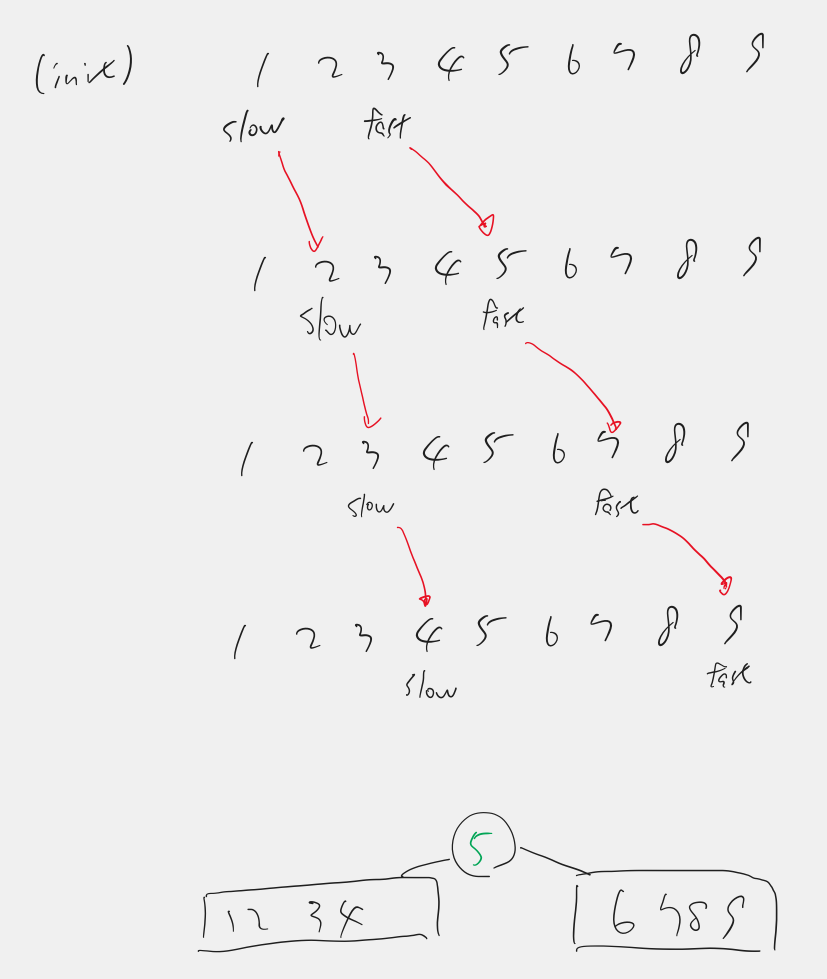 (init) 1 2 3 4 5 6 7 8 9
slow fast
1 2 3 4 5 6 7 8 9
slow fast
1 2 3 4 5 6 7 8 9
slow fast
1 2 3 4 5 6 7 8 9
slow fast
5
1 2 3 4 6 7 8 9